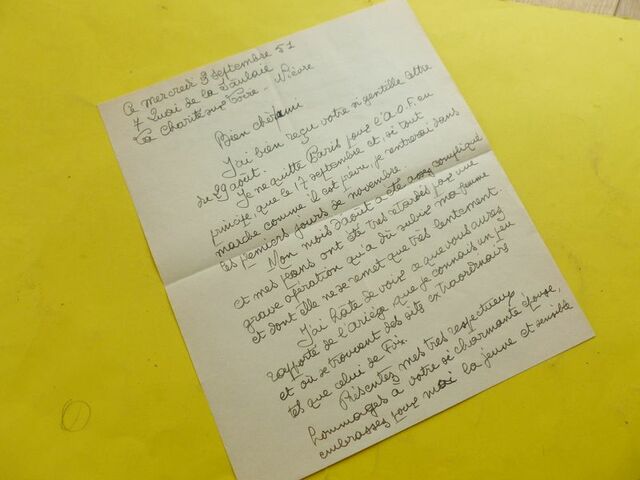 Ce Mercredi 3 septembre 51
7 Quai de la Saulaie
La Charité sur Loire - Nièvre
Bien cher ami
J'ai bien reçu votre si gentille lettre
du 29 août.
Je ne quitte Paris pour l'A.O.F. en
principe, que le 17 septembre et, si tout
marche comme il est prévu, je rentrerai dans
les premiers jours de novembre.
Mon mois d'août a été assez compliqué
et mes plans ont été très retardés par une
grave opération qu'a dû subir ma femme
et dont elle ne se remet que très lentement.
J'ai hâte de voir ce que vous avez
rapporté de l'Ariège que je connais un peu
et où se trouvent des sites extraordinaires
tels que celui de Foix.
Présentez mes très respectueux
hommages à votre si charmante épouse,
embrassez pour moi la jeune et sensible